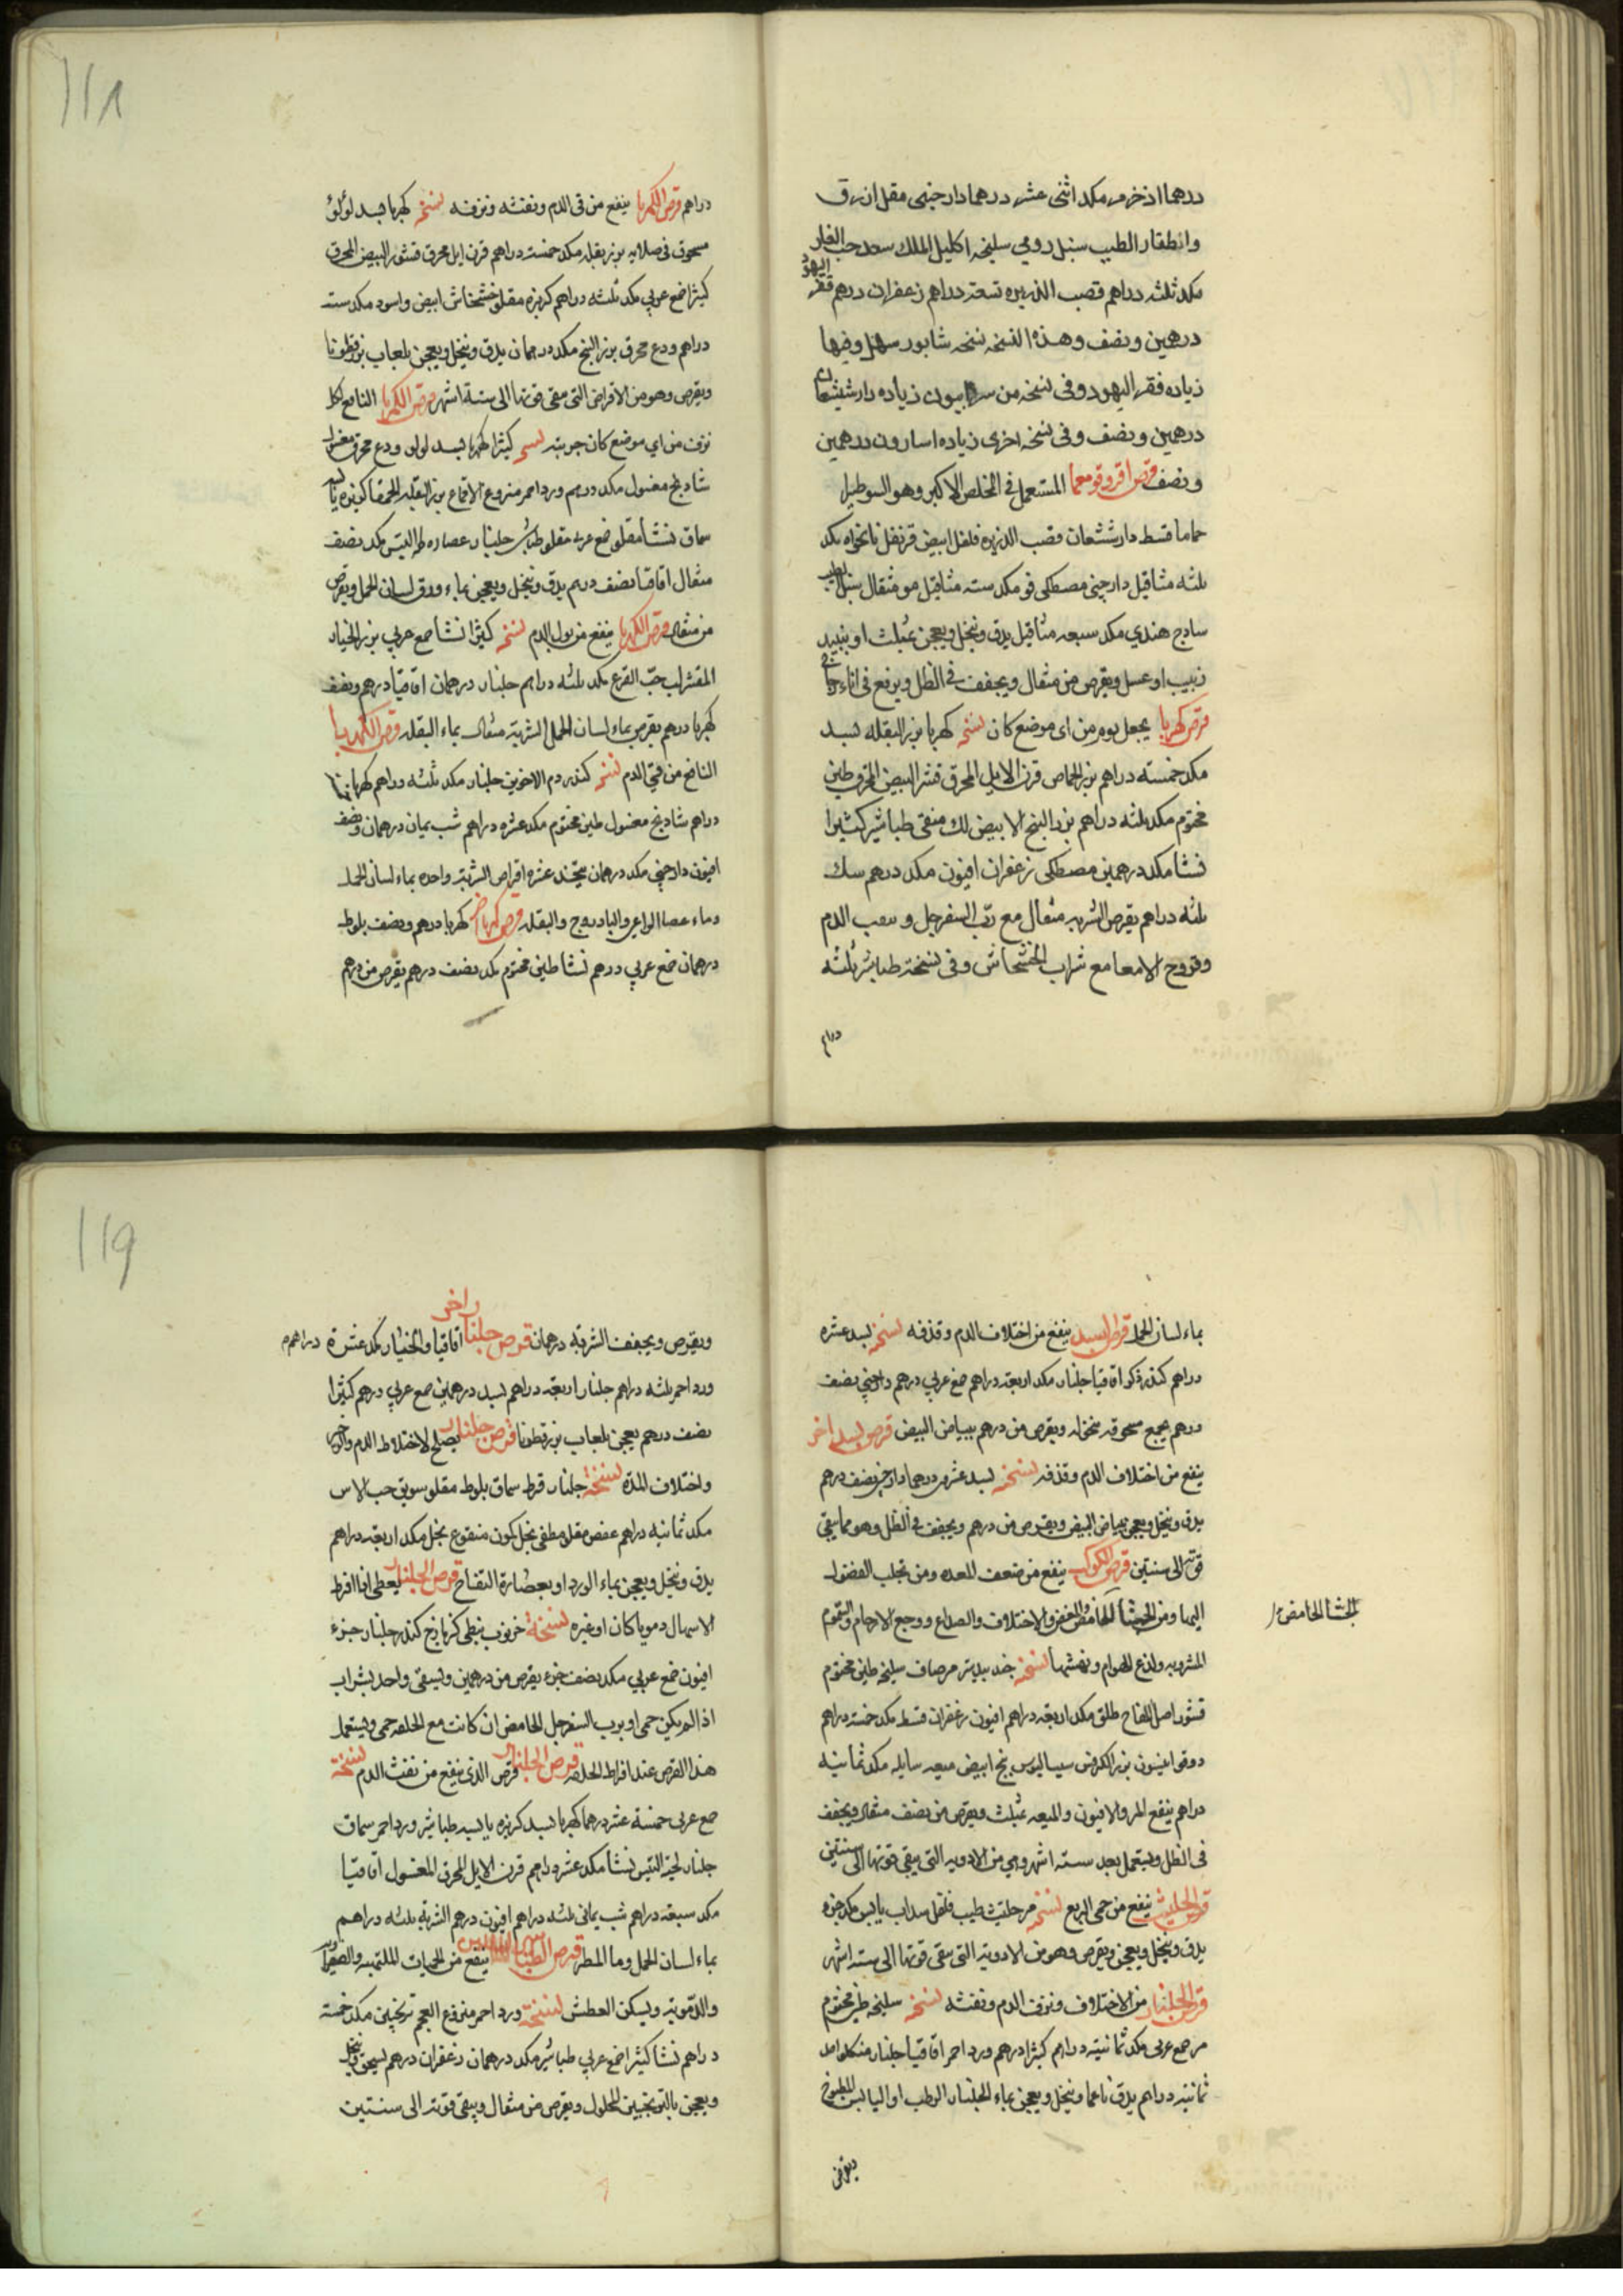 درهما اذخر مر مكد اثنى عشر درهما دارصينى مقل ازرق
واظفار الطيب سنبل رومي سليخه اكليل الملك سعد حب الغار
مكد ثلثه دراهم قصب الذريره تسعة دراهم زعفران درهم فقر اليهود
درهمين ونصف وهذه النسخه نسخه شابور سهل وفيها
زياده فقر اليهود وفى نسخه من زياده دارشيشعان
درهمين ونصف وفى نسخه اخرى زياده اسارون درهمين
ونصف قرص اقروقومعما المستعمل فى المخلص الاكبر وهو السوطيرا
حماما قسط دارششعان قصب الذريره فلفل ابيض قرنفل نانخواه مكد
ثلثه مثاقيل دارچينى مصطكى فو مكد سته مثاقيل مر مثقال سنبل الطيب
سادج هندي مكد سبعه مثاقيل يدق وينخل ويعجن بمثلث او بنبيد
زبيب او عسل ويقرص من مثقال ويجفف فى الظل ويرفع فى اناء زجاج
قرص كهربا يجعل يوم من اى موضع كان نسخه كهربا بزر البقله بسد
مكد خمسته دراهم بزر الحماض قرن الايل المحرق قشر البيض المحرق طين
مختوم مكد ثلثه دراهم بزر البنج الابيض لك منقى طباشير كثيرا
نشا مكد درهمين مصطكى زعفران افيون مكد درهم سك
ثلثه دراهم يقرص الشربه مثقال مع رب السفرجل و الدم
وقروح الامعا مع شراب الخشخاش وفى نسخة طباشير ثلثه
دراهم
١١٨
دراهم قرص الكهربا ينفع من قى الدم ونفثه ونزفه نسخه كهربا بسد لؤلؤ
مسحوق فى صلايه بزر بقله مكد خمسة دراهم قرن ايل محرق قشور البيض المحرق
كثيرا صمغ عربي مكد ثلثه دراهم كزبره مقلو خشخاش ابيض واسود مكد سته
دراهم ودع محرق بزر البنج مكد درهمان يدق وينخل ويعجن بلعاب بزرقطونا
ويقرص وهو من الاقراص التى تبقى قوتها الى ستة اشهر قرص الكهربا النافع لكل
نزف من اي موضع كان جربته نسخه كثيرا كهربا بسد لولو ودع محرق مغسول
شادنج مغسول مكد درهم ورد احمر منزوع الاقماع بزر البقله الحمقا كزبره يابسه
سماق نشا مقلو صمغ عربى مقلو طباشير جلنار عصاره لحية التيس مكد نصف
مثقال اقاقيا نصف درهم يدق وينخل ويعجن بماء ورق لسان الحمل ويقرص
من مثقال قرص الكهربا ينفع من بول الدم نسخه كثيرا نشا صمغ عربي بزر الخيار
المقشر لب حب القرع مكد ثلثه دراهم جلنار درهمان اقاقيا درهم ونصف
كهربا درهم يقرص بماء لسان الحمل الشربة مثقال بماء البقله قرص الكهربا
النافع من قى الدم نسخه كندر دم الاخوين جلنار مكد ثلثه دراهم كهربا
دراهم شادنج مغسول طين مختوم مكد عشره دراهم شب يمان درهمان ونصف
افيون دارچينى مكد درهمان يتخذ عشره اقراص الشربة واحده بماء لسان الحمل
وماء عصا الراعى والبادروج والبقله قرص كهربا اخر كهربا درهم ونصف بلوط
درهمان صمغ عربي درهم نشا طين مختوم مكد نصف درهم يقرص من درهم
بماء لسان الحمل قرص البسد ينفع من اختلاف الدم وقذفه نسخه بسد عشره
دراهم كندر ذكر اقاقيا جلنار مكد اربعة دراهم صمغ عربي درهم دارچينى نصف
درهم يجمع مسحوقه منخوله ويقرص من درهم ببياض البيض قرص بسد اخر
ينفع من اختلاف الدم وقذفه نسخه بسد عشرين درهما دارچينى نصف درهم
يدق وينخل ويعجن ببياض البيض ويقرص من درهم ويجفف فى الظل وهو مما يبقى
قوته الى سنتين قرص الكوكب ينفع من ضعف المعده ومن تجلب الفضول
اليها ومن الجشأ الحامض والمغص والاختلاف والصداع ووجع الارحام والسموم
الجشا الحامض
المشروبه ولذع الهوام ونهشها نسخه جندبيدستر مر صاف سليخه طين مختوم
قشور اصل اللفاح طلق مكد اربعة دراهم افيون زعفران قسط مكد خمسة دراهم
دوقو انيسون بزر الكرفس سيساليوس بنج ابيض ميعه سايله مكد ثمانيه
دراهم ينقع المر والافيون والميعه بمثلث ويقرص من نصف مثقال ويجفف
فى الظل ويستعمل بعد سته اشهر وهي من الادويه التى يبقى قوتها الى سنتين
قرص الحلتيت ينفع من حمى الربع نسخه مر حلتيت طيب فلفل سداب يابس مكد جزء
يدق وينخل ويعجن ويقرص وهو من الادوية التى تبقى قوتها الى سته اشهر
قرص الجلنار من الاختلاف ونزف الدم ونفثه نسخه سليخه طين مختوم
مر صمغ عربى مكد ثمانية دراهم كثيرا درهم ورد احمر اقاقيا جلنار من كل واحد
ثمانية دراهم يدق ناعما وينخل ويعجن بماء الجلنار الرطب او اليابس المطبوخ
ويقرص
١١٩
ويقرص ويجفف الشربه درهمان قرص جلنار اخر اقاقيا والخيار مكد عشرة دراهم
ورد احمر ثلثه دراهم جلنار اربعة دراهم بسد درهمين صمغ عربي درهم كثيرا
نصف درهم يعجن بلعاب بزرقطونا قرص جلنار يصلح لاختلاط الدم
واختلاف المدة نسخة جلنار قرط سماق بلوط مقلو سويق حب الاس
مكد ثمانيه دراهم عفص مقلو مطفى بخل كمون منقوع بخل مكد اربعة دراهم
يدق وينخل ويعجن بماء الورد او بعصارة التفاح قرص الجلنار يعطى اذا افرط
الاسهال دمويا كان او غيره نسخة خرنوب نبطى كزمازج كندر جلنار جزء
افيون صمغ عربي مكد نصف جزء يقرص من درهمين ويسقى واحد بشراب
اذا لم يكن حمى او برب السفرجل الحامض ان كانت مع الخلفه حمى ويستعمل
هذا القرص عند افراط الخلفه قرص الجلنار قرص الذى ينفع من نفث الدم نسخة
صمغ عربى خمسة عشر درهما كهربا بسد كزبره يابسه طباشير ورد احمر سماق
جلنار لحية التيس نشا مكد عشر دراهم قرن الايل المحرق المغسول اقاقيا
مكد سبعة دراهم شب يمانى ثلثه دراهم افيون درهم الشربة ثلثه دراهم
بماء لسان الحمل وما المطر قرص الطباشير ينفع من الحميات الملتهبه والصفراويه
والدموية ويسكن العطش نسخة ورد احمر منزوع العجم ترنجبين مكد خمسة
دراهم نشا كثيرا صمغ عربي طباشير مكد درهمان زعفران درهم يسحق وينخل
ويعجن بالترنجبين المحلول ويقرص من مثقال ويبقى قوته الى سنتين